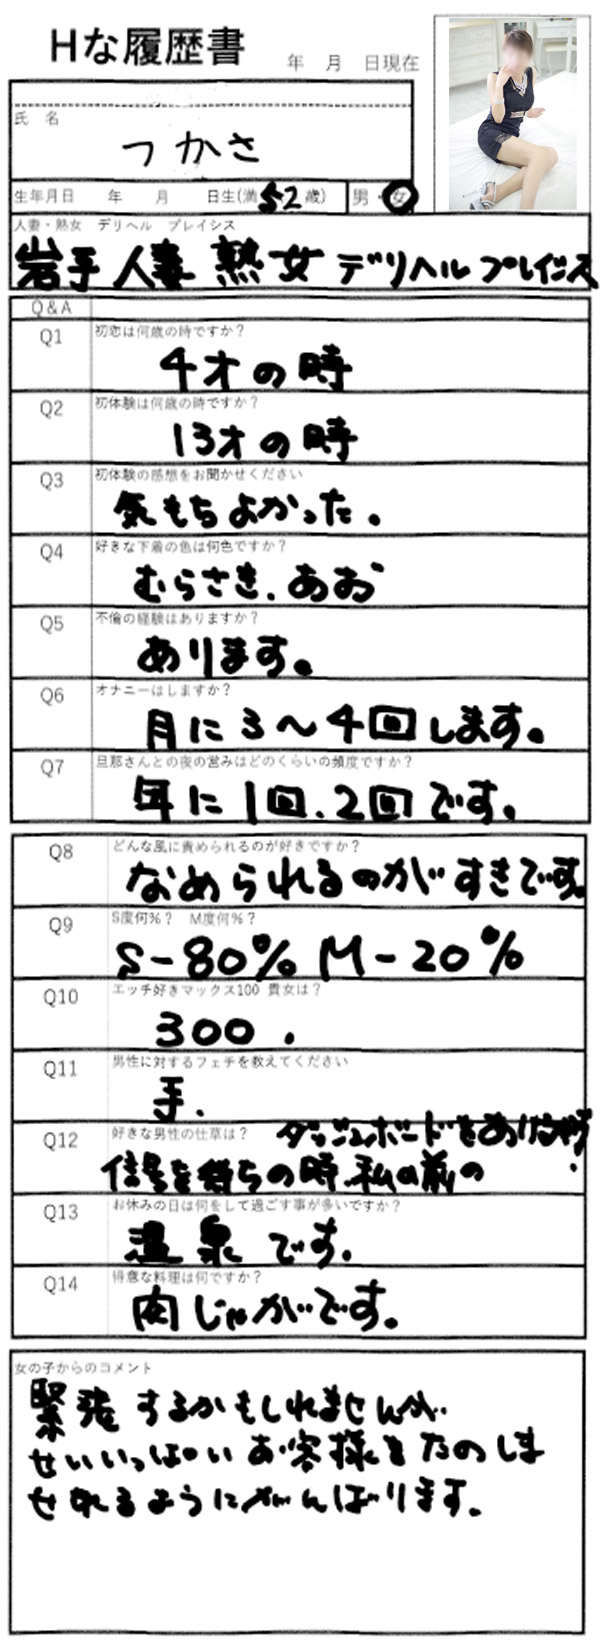 Hな履歴書
年 月 日現在
氏 名
つかさ
生年月日 年 月 日生(満52歳) 男・女
人妻・熟女 デリヘル プレイシス
岩手人妻熟女デリヘルプレイシス
Q&A
Q1 初恋は何歳の時ですか?
4才の時
Q4 好きな下着の色は何色ですか?
むらさき、あお
Q5 不倫の経験はありますか?
あります。
Q6 オナニーはしますか?
月に3〜4回します。
Q7 旦那さんとの夜の営みはどのくらいの頻度ですか?
年に1回、2回です。
Q8 どんな風に責められるのが好きですか?
なめられるのがすきです。
Q9 S度何%? M度何%?
S-80% M-20%
Q10 エッチ好きマックス100 貴女は?
300.
Q11 男性に対するフェチを教えてください
手.
Q12 好きな男性の仕草は?
信号を待ちの時、私の前の
ダッシュボードを
Q13 お休みの日は何をして過ごす事が多いですか?
温泉です。
Q14 得意な料理は何ですか?
肉じゃがです。
女の子からのコメント
緊張するかもしれませんが
せいいっぱいお客様をたのしま
せれるようにがんばります。